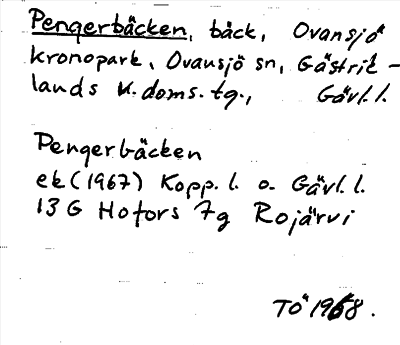 Pengerbäcken, bäck, Ovansjö
kronopark, Ovansjö sn, Gästrik-
lands v.doms.tg., Gävl.l.
Pengerbäcken
ek (1967) Kopp. l. o. Gävl. l.
13 G Hofors 7g Rojärvi
TÖ 1968.